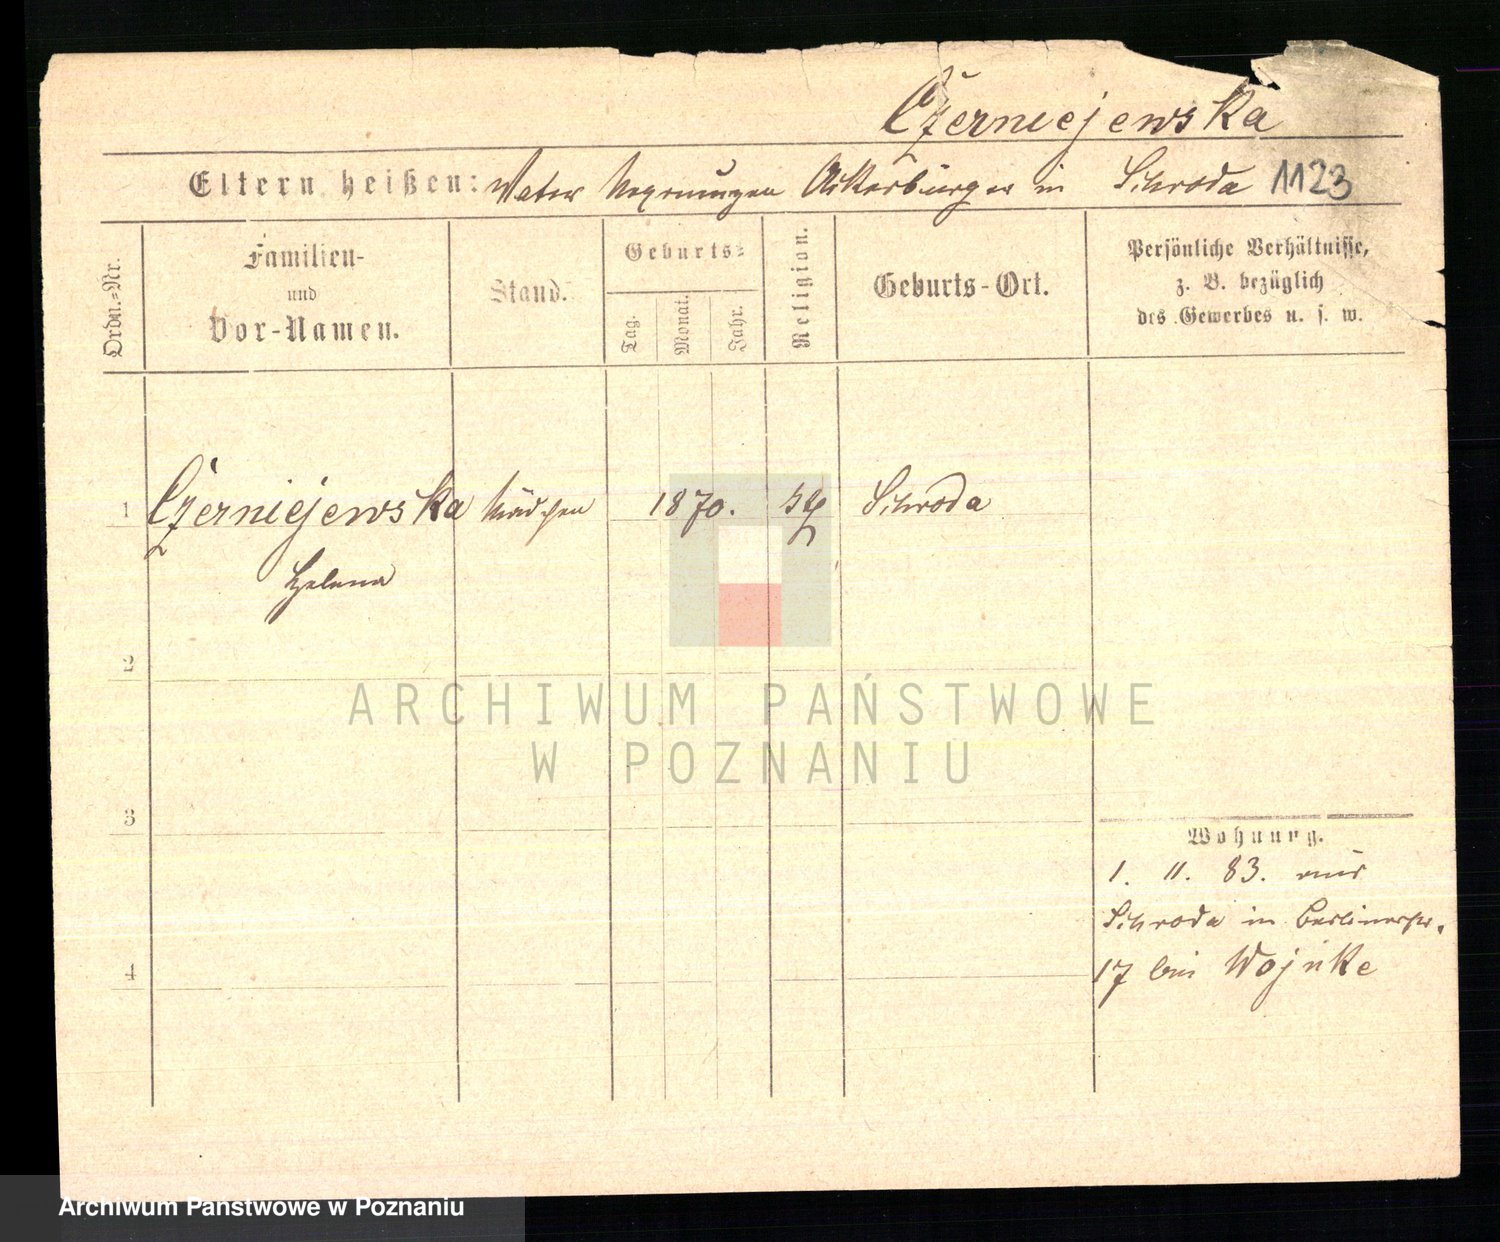 Czerniejewska
Eltern heißen: Vater Ackerbürger in Schroda 1123
Ordn.=Nr.
Familien-
und
Vor-Namen.
Stand.
Geburts=
Tag.
Monat.
Jahr.
Religion.
Geburts-Ort.
Persönliche Verhältnisse,
z. B. bezüglich
des Gewerbes u. s. w.
1 Czerniejewska Mädchen 1870. Schroda
Helena
2
3
4
Wohnung.
1. 11. 83. aus
Schroda in Berlinerstr.
17 bei Wojnke
ARCHIWUM PAŃSTWOWE
W POZNANIU
Archiwum Państwowe w Poznaniu